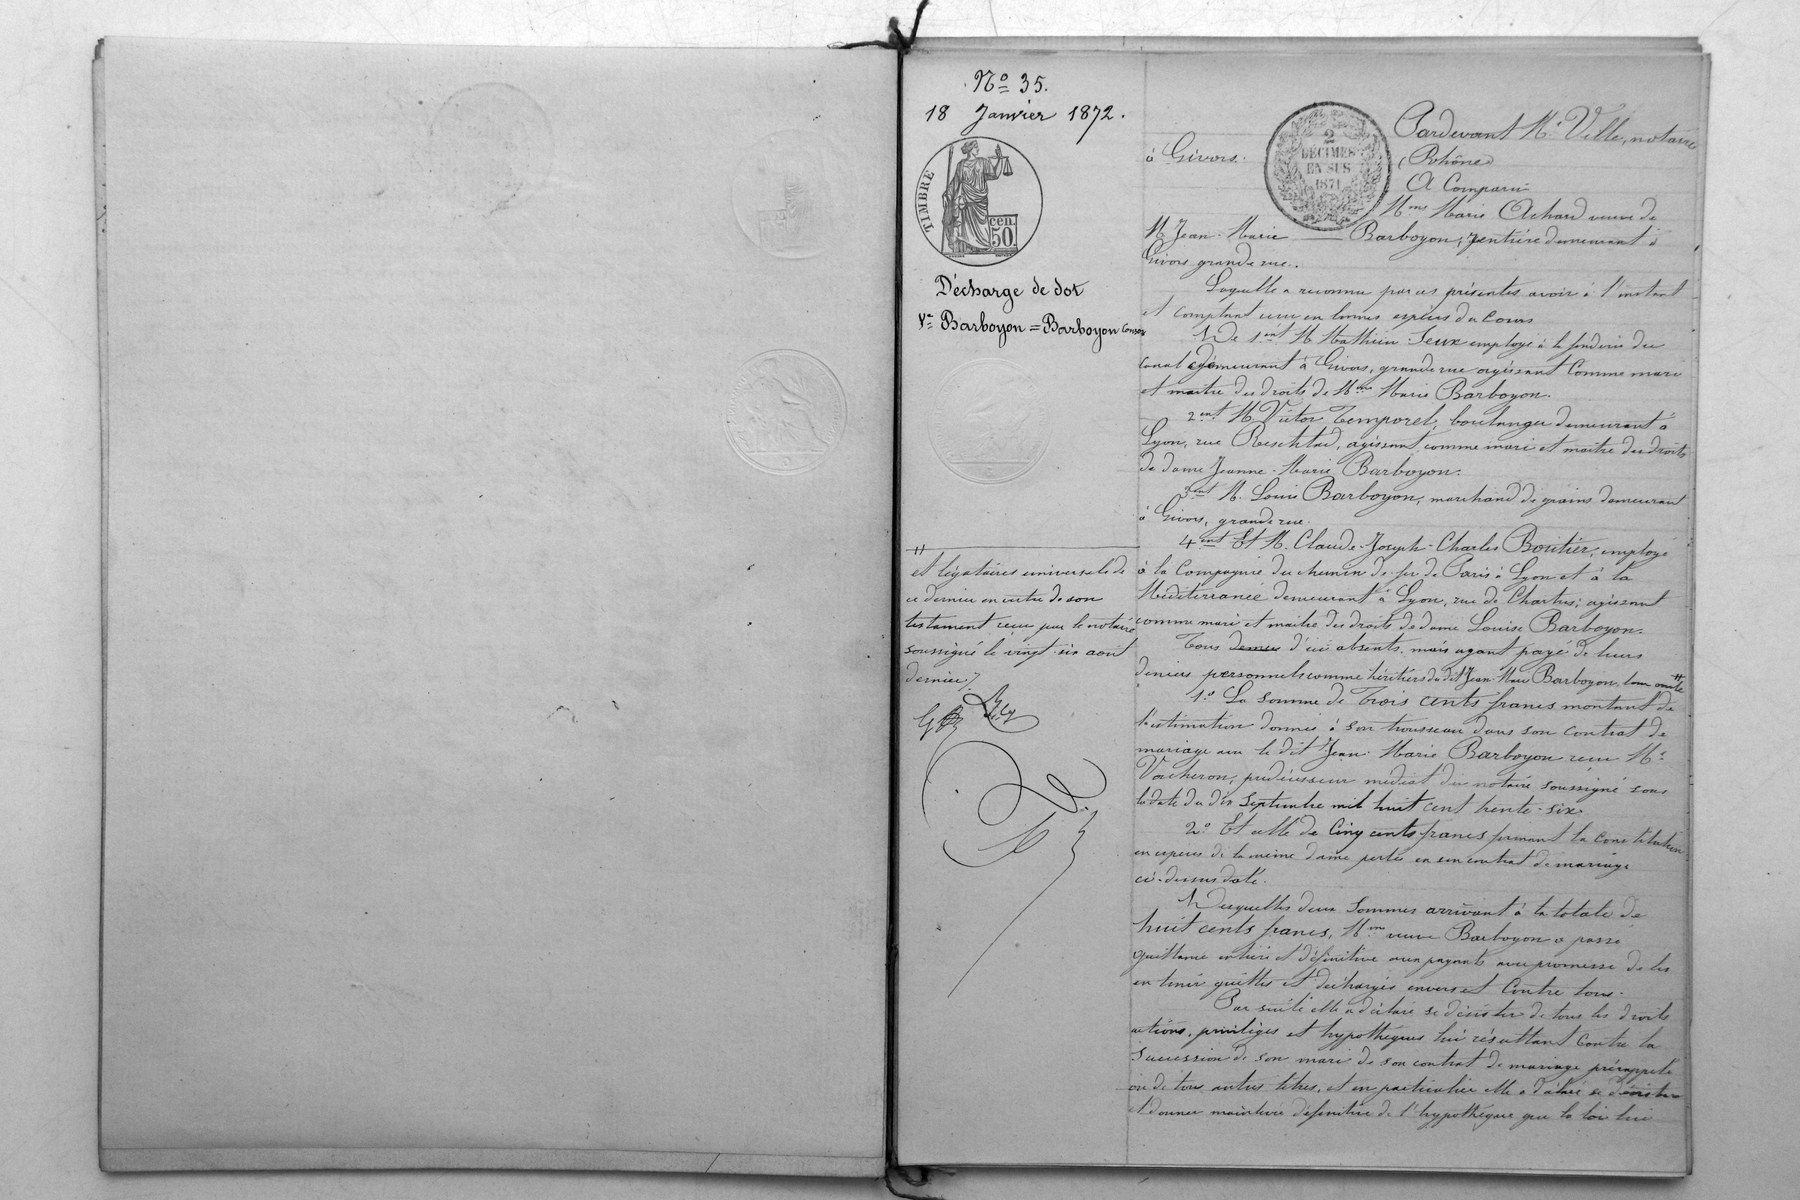 No 35.
18 Janvier 1872.
TIMBRE
cen.
50.
Décharge de dot
Ve Barboyon = Barboyon Consors
et légataires universels de
ce dernier en vertu de son
testament reçu par le notaire
soussigné le vingt-six aout
dernier /.
2
DÉCIMES
EN SUS
1871
Pardevant Me Ville, notaire
à Givors. (Rhône)
A Comparu
Mme Marie Achard veuve de
M. Jean-Marie Barboyon, rentière demeurant à
Givors grande rue.
Laquelle a reconnu par ces présentes avoir à l'instant
et comptant reçu en bonnes espèces du cours
De 1ent M. Mathieu Jeux employé à la fonderie du
canal demeurant à Givors, grande rue agissant comme mari
et maitre des droits de Mme Marie Barboyon.
2ent M. Victor Temporel, boulanger demeurant à
Lyon, rue agissant comme mari et maitre des droits
de dame Jeanne-Marie Barboyon.
3ent M. Louis Barboyon, marchand de grains demeurant
à Givors, grande rue.
4ent Et M. Claude-Joseph-Charles Boutier, employé
à la Compagnie du chemin de fer de Paris à Lyon et à la
Méditerranée demeurant à Lyon, rue de Chartres; agissant
comme mari et maitre des droits de dame Louise Barboyon.
Tous d'ici absents, mais ayant payé de leurs
deniers personnels comme héritiers du dit Jean-Marie Barboyon, leur
1o La somme de Trois cents francs montant de
l'estimation donnée à son trousseau dans son contrat de
mariage avec le dit Jean-Marie Barboyon reçu Me
Vacheron, prédécesseur médiat du notaire soussigné sous
la date du dix Septembre mil huit cent trente-six.
2o Et celle de Cinq cents francs formant la constitution
en espèces de la même dame portée en son contrat de mariage
ci-dessus daté.
Desquelles deux sommes arrivant à la totale de
huit cents francs, Mme veuve Barboyon a passé
quittance entière et définitive aux payants avec promesse de les
en tenir quittes et déchargés envers et contre tous.
Par suite elle a déclaré se désister de tous les droits
actions, privilèges et hypothèques lui résultant contre la
succession de son mari de son contrat de mariage prérappelé
ou de tous autres titres, et en particulier elle a déclaré se désister
et donner mainlevée définitive de l'hypothèque que la loi lui